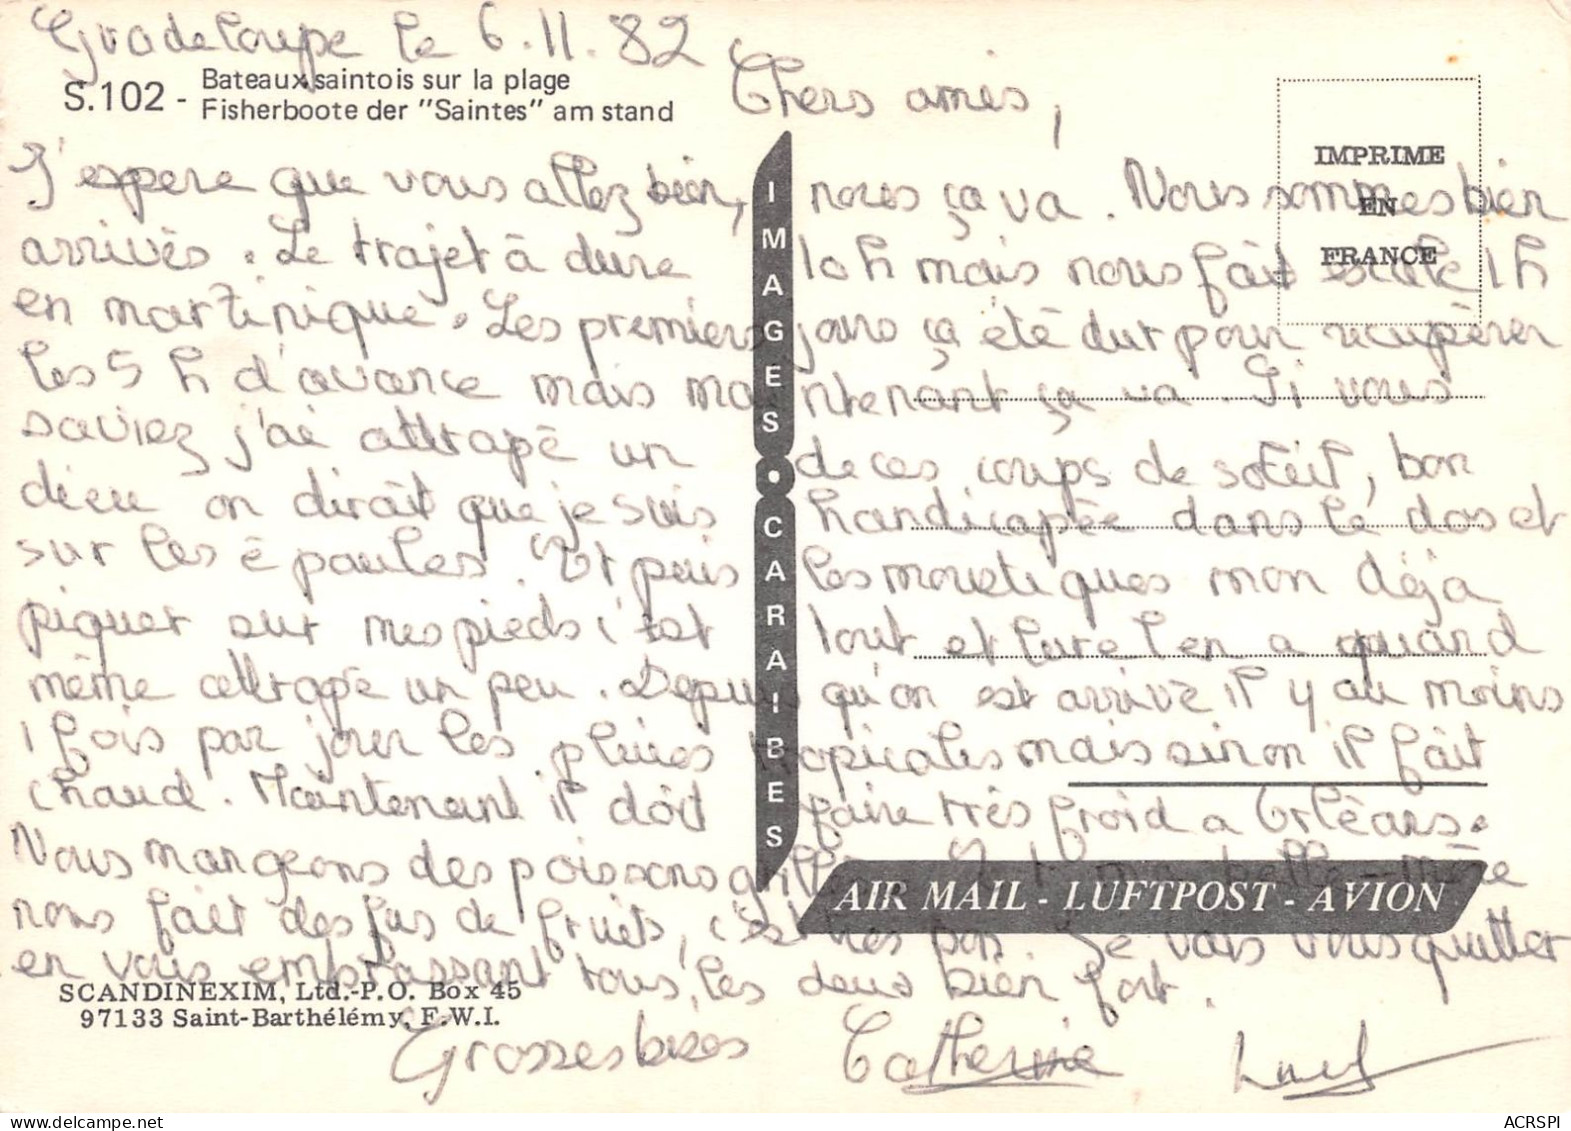 Guadeloupe le 6.11.82
S.102 - Bateaux saintois sur la plage
Fisherboote der "Saintes" am stand
Chers amis,
IMPRIME
EN
FRANCE
J'espere que vous allez bien, nous ça va. Nous sommes bien
arrivés. Le trajet à dure 10h mais nous fait escale 1h
en martinique. Les premiers jours ça été dur pour récupérer
les 5 h d'avance mais maintenant ça va. Si vous
saviez j'ai attrapé un de ces coups de soleil, bon
dieu on dirait que je suis handicapée dans le dos et
sur les épaules. Et puis les moustiques mon déjà
piquer sur mes pieds c'est tout et Luc l'en a quand
même attrapé un peu. Depuis qu'on est arrivé il y au moins
1 fois par jour les pluies tropicales mais sinon il fait
chaud. Maintenant il doit faire très froid a Orléans.
Nous mangeons des poissons grillés belle-mère
nous fait des jus de fruits, c'est très bon. Je vais vous quitter
en vous embrassant tous les deux bien fort.
Grosses bises Catherine Luc
IMAGES CARAIBES
AIR MAIL - LUFTPOST - AVION
SCANDINEXIM, Ltd.-P.O. Box 45
97133 Saint-Barthélémy, F.W.I.
ACRSPI